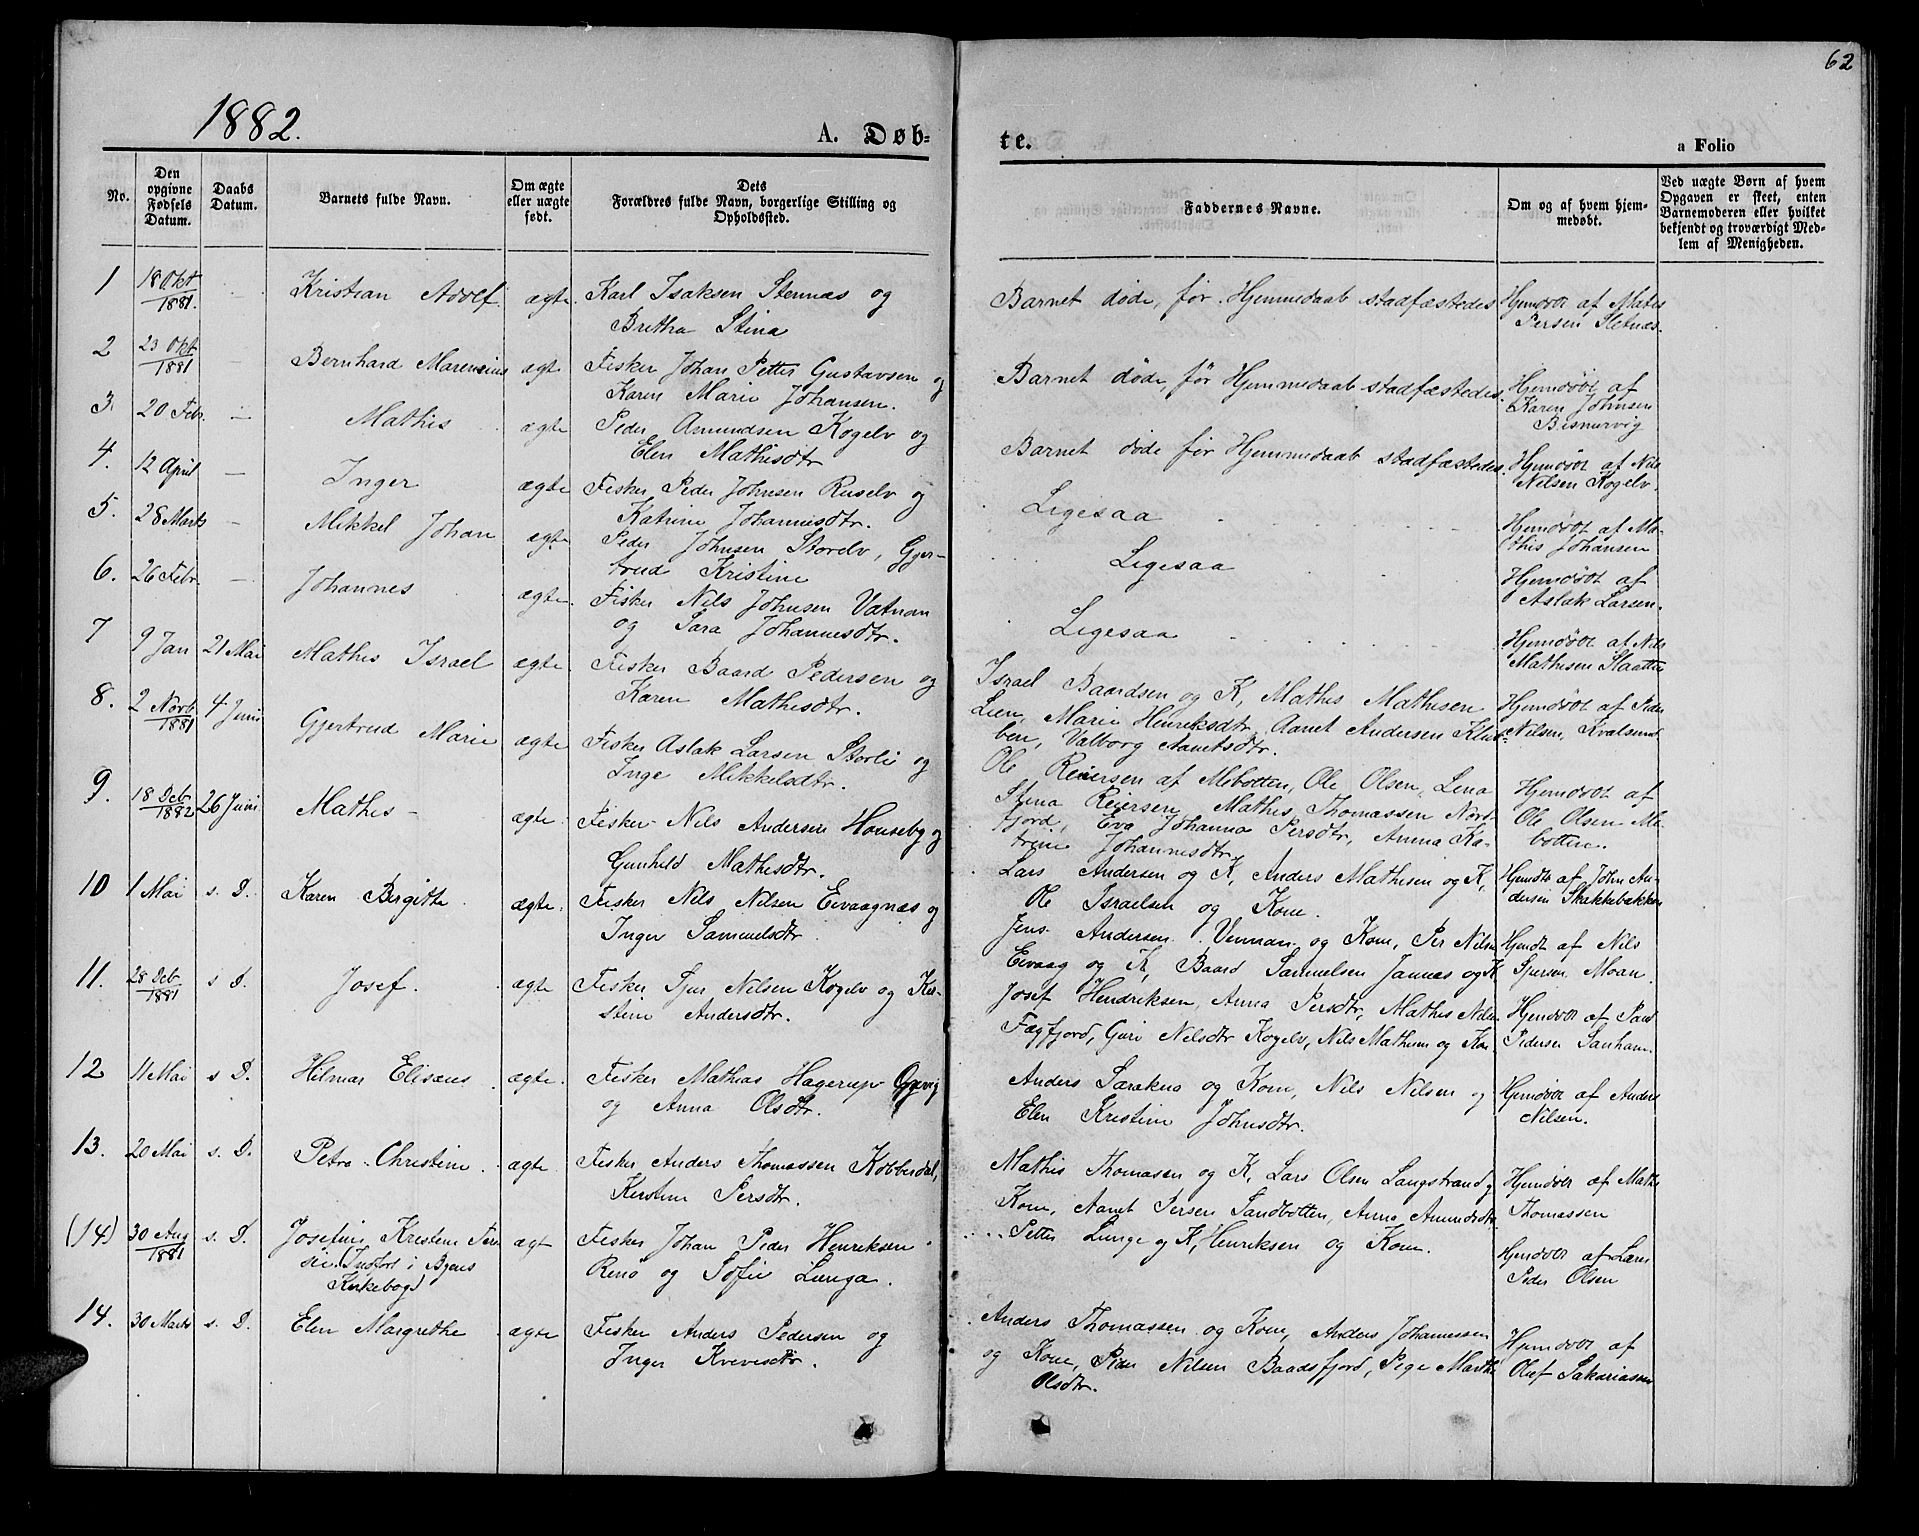 62
1882.
A. Døb-
te.
a Folio
No.
Den
opgivne
Fødsels
Datum.
Daabs
Datum.
Barnets fulde Navn.
Om ægte
eller uægte
født.
Dets
Forældres fulde Navn, borgerlige Stilling og
Opholdssted.
Faddernes Navne.
Om og af hvem hjem-
medøbt.
Ved uægte Børn af hvem
Opgaven er skeet, enten
Barnemoderen eller hvilket
bekjendt og troværdigt Med-
lem af Menigheden.
1
18 Okt
1881.
Kristian Adolf
ægte.
Karl Isaksen Stennæs og
Bretha Stina
Barnet døde, før Hjemmedaab stadfæstedes
Hjemdøbt af Mates
Persen Sletnes.
2
23 Okt
1881
Bernhard Marensius
ægt
Fisker Johan Petter Gustavsen og
Karen Marie Johansen.
Barnet døde, før Hjemmedaab stadfæstedes.
Hjemdøbt af
Karen Johnsen
3.
20 Feb.
Mathis
ægte
Peder Amundsen Kogelv og
Elen Mathisdtr
Barnet døde før Hjemmedaab stadfæstedes.
Hjemdøbt af Nils
Nilsen Kogelv.
4.
12 April
Inger
ægte
Fisker Peder Johnsen Ruselv og
Katrine Johannesdtr.
Ligesaa
Hjemdøbt af Ma-
this Johansen
5.
28 Marts
Mikkel Johan
ægte
Peder Johnsen Storelv, Gjer-
trud Kristine
Ligesaa
Hjemdøbt af
Aslak Larsen.
6.
26 Febr.
Johannes
ægte.
Fisker Nils Johnsen Vatnan
og Sara Johannesdtr.
Ligesaa
Hjemdøbt af Nils
Mathisen Slaatten
7
9 Jan
21 Mai
Mathis Israel
ægte
Fisker Baard Pedersen og
Karen Mathisdtr.
Israel Baardsen og K, Mathis Mathisen
Lien, Marie Henriksdtr, Aanet Andersen Klub-
ben, Valborg Aanetsdtr.
Hjemdøbt af Peder
Nilsen, Kvalsund
8.
2 Novb
1881
4 Juni
Gjertrud Marie
ægte
Fisker Aslak Larsen Storli og
Inge Mikkelsdtr.
Ole Reiersen af Mebotten, Ole Olsen, Lena
Stina Reiersen, Mathis Thomassen Nord-
fjord, Eva Johanna Persdtr, Anna Ka-
trine Johannesdtr
Hjemdøbt af
Ole Olsen Me-
botten.
9.
18 Deb
1882
26 Juni
Mathis
ægte.
Fisker Nils Andersen Houseby og
Gunhild Mathisdtr.
Lars Andersen og K, Anders Mathisen og K,
Ole Israelsen og Kone.
Hjemdbt af John An-
dersen Skakkebakken
10
1 Mai
s. D.
Karen Birgitte
ægte.
Fisker Nils Nilsen Eivaagnæs og
Inger Samuelsdtr
Jens Andersen Vennan og Kone, Per Nilsen
Eivaag og K, Baard Samuelsen Jannæs og K
Hjemdt af Nils
Spersen Moan.
11.
28 Deb
1881
s D.
Josef.
ægte
Fisker Sjur Nilsen Kogelv og Kir-
stine Andersdtr.
Josef Hendriksen, Anna Persdtr, Mathis Nilsen
Fægfjord, Guri Nilsdtr Kogelv, Nils Mathisen og Kone
Hjemdøbt af Paul
Pedersen
12
11 Mai
s D.
Hilmar Elisæus
ægte.
Fisker Mathias Hagerup
og Anna Olsdtr.
Anders Sarakna og Kone, Nils Nilsen og
Elen Kristine Johnsdtr.
Hjemdøbt af Anders
Nilsen.
13.
20 Mai
s. D.
Petra Christine
ægte
Fisker Anders Thomassen Kobberdal,
Kirstine Persdtr.
Mathis Thomasen og K, Lars Olsen Langstrand og
Kone, Aanet Persen Sandbotten, Anna Amundsdtr
Hjemdøbt af Mathis
Thomassen
(14)
30 Aug
1881
s. D.
Josefine Kristine Tere-
sie (Indført i Byens
Kirkebog)
ægt
Fisker Johan Peder Henriksen
Renø og Sofie Lunga.
Petter Lunge og K, Henriksen og Kone.
Hjemdøbt af Lars
Peder Olsen
14.
30 Marts
s. D.
Elen Margrethe
ægte
Fisker Anders Pedersen og
Inger Kvevesdtr.
Anders Thomassen og Kone, Anders Johannessen
og Kone, Peder Nilsen Baadsfjord, Pige Marthe
Olsdtr.
Hjemdøbt af
Olaf Sakariassen